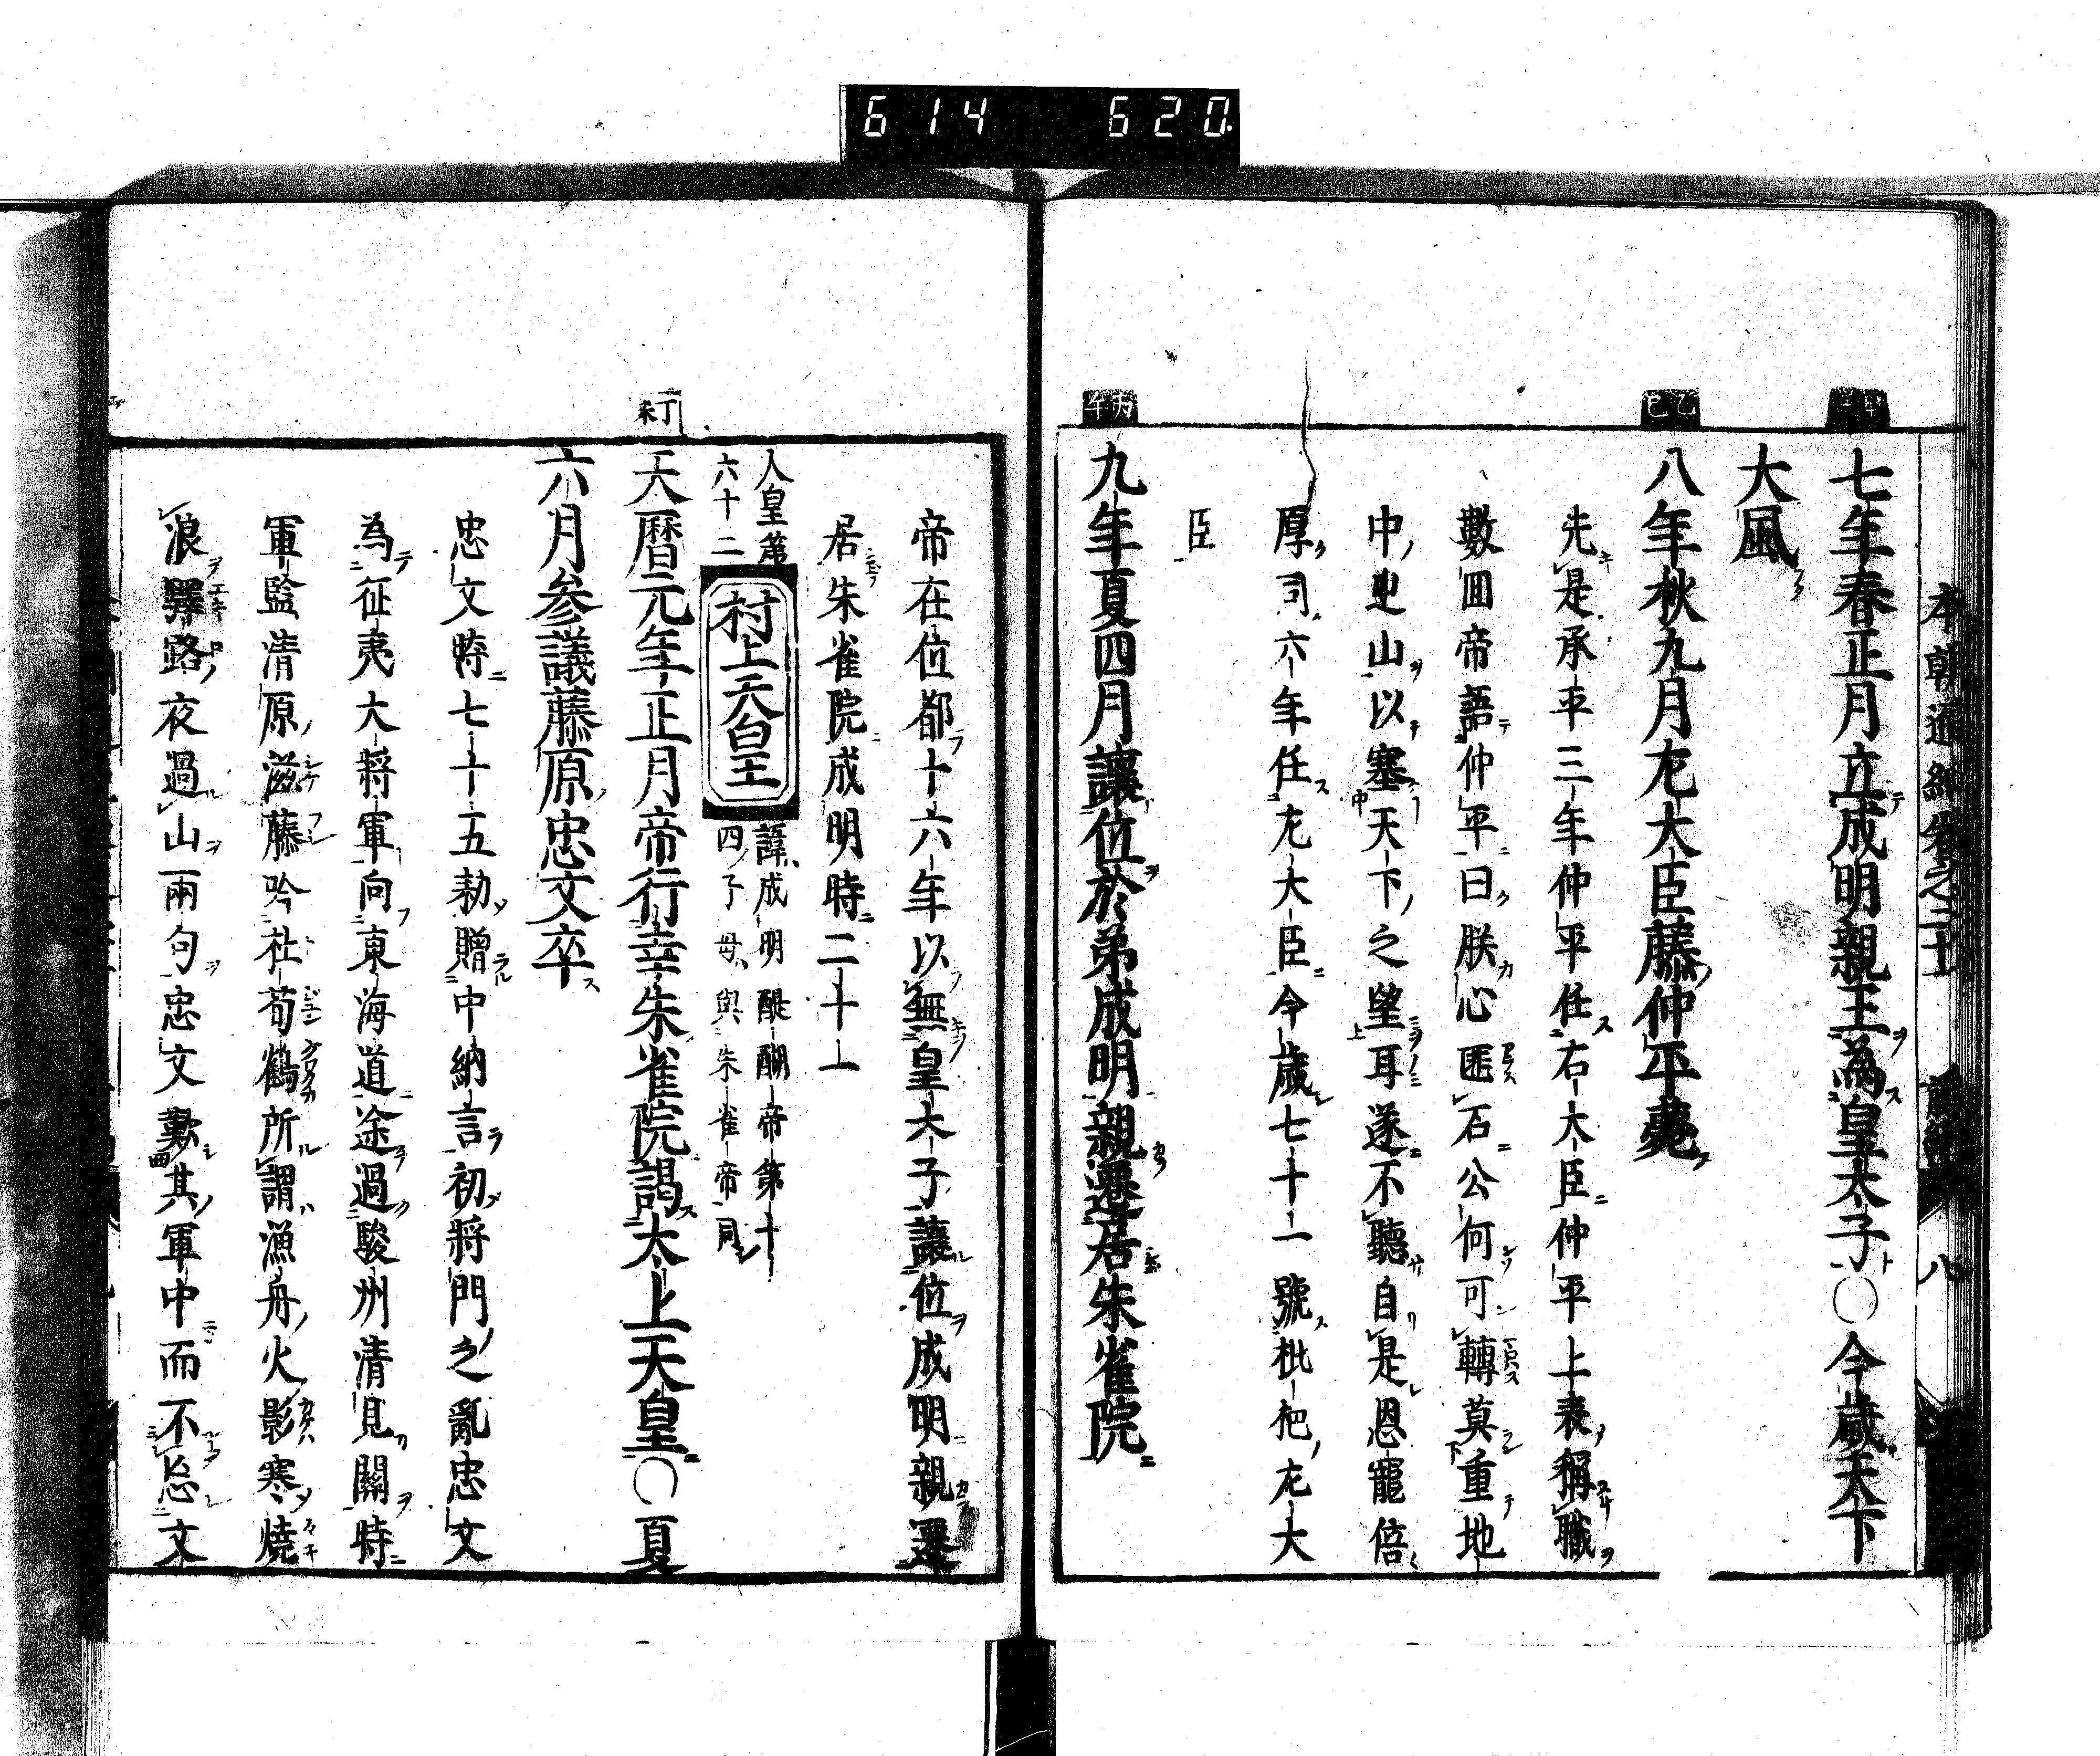 614 620
本朝通紀卷之二十 前編 八
七年春正月立成明親王為皇太子○今歲天下
大風
乙巳
八年秋九月左大臣藤仲平薨
先是承平三年仲平任右大臣仲平上表稱職
數回帝語仲平曰朕心匪石公何可轉莫重地
中出山以塞天下之望耳遂不聽自是恩寵倍
厚同六年任左大臣今歲七十一號枇杷左大
臣
丙午
九年夏四月讓位於弟成明親遷居朱雀院
帝在位都十六年以無皇太子讓位成明親遷
居朱雀院成明時二十一
人皇第
六十二
村上天皇
諱成明醍醐帝第十
四子母與朱雀帝同
丁未
天曆元年正月帝行幸朱雀院謁太上天皇○夏
六月参議藤原忠文卒
忠文時七十五勅贈中納言初將門之亂忠文
為征夷大將軍向東海道途過駿州清見關時
軍監清原滋藤吟杜荀鶴所謂漁舟火影寒燒
浪驛路夜過山兩句忠文歎其軍中而不忘文